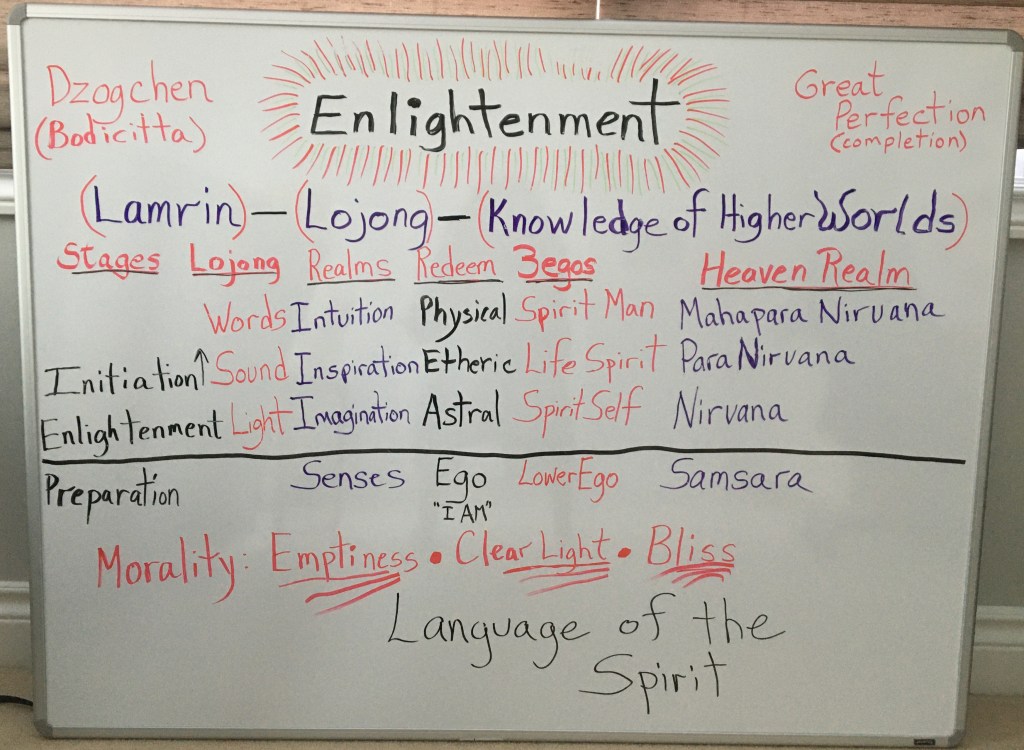 Dzogchen
(Bodicitta)
Enlightenment
Great
Perfection
(completion)
(Lamrin) — (Lojong) — (Knowledge of Higher Worlds)
Stages Lojong Realms Redeem 3egos Heaven Realm
Words Intuition Physical Spirit Man Mahapara Nirvana
Initiation ↑ Sound Inspiration Etheric Life Spirit Para Nirvana
Enlightenment Light Imagination Astral Spirit Self Nirvana
Preparation Senses Ego Lower Ego Samsara
"I AM"
Morality: Emptiness • Clear Light • Bliss
Language of the
Spirit